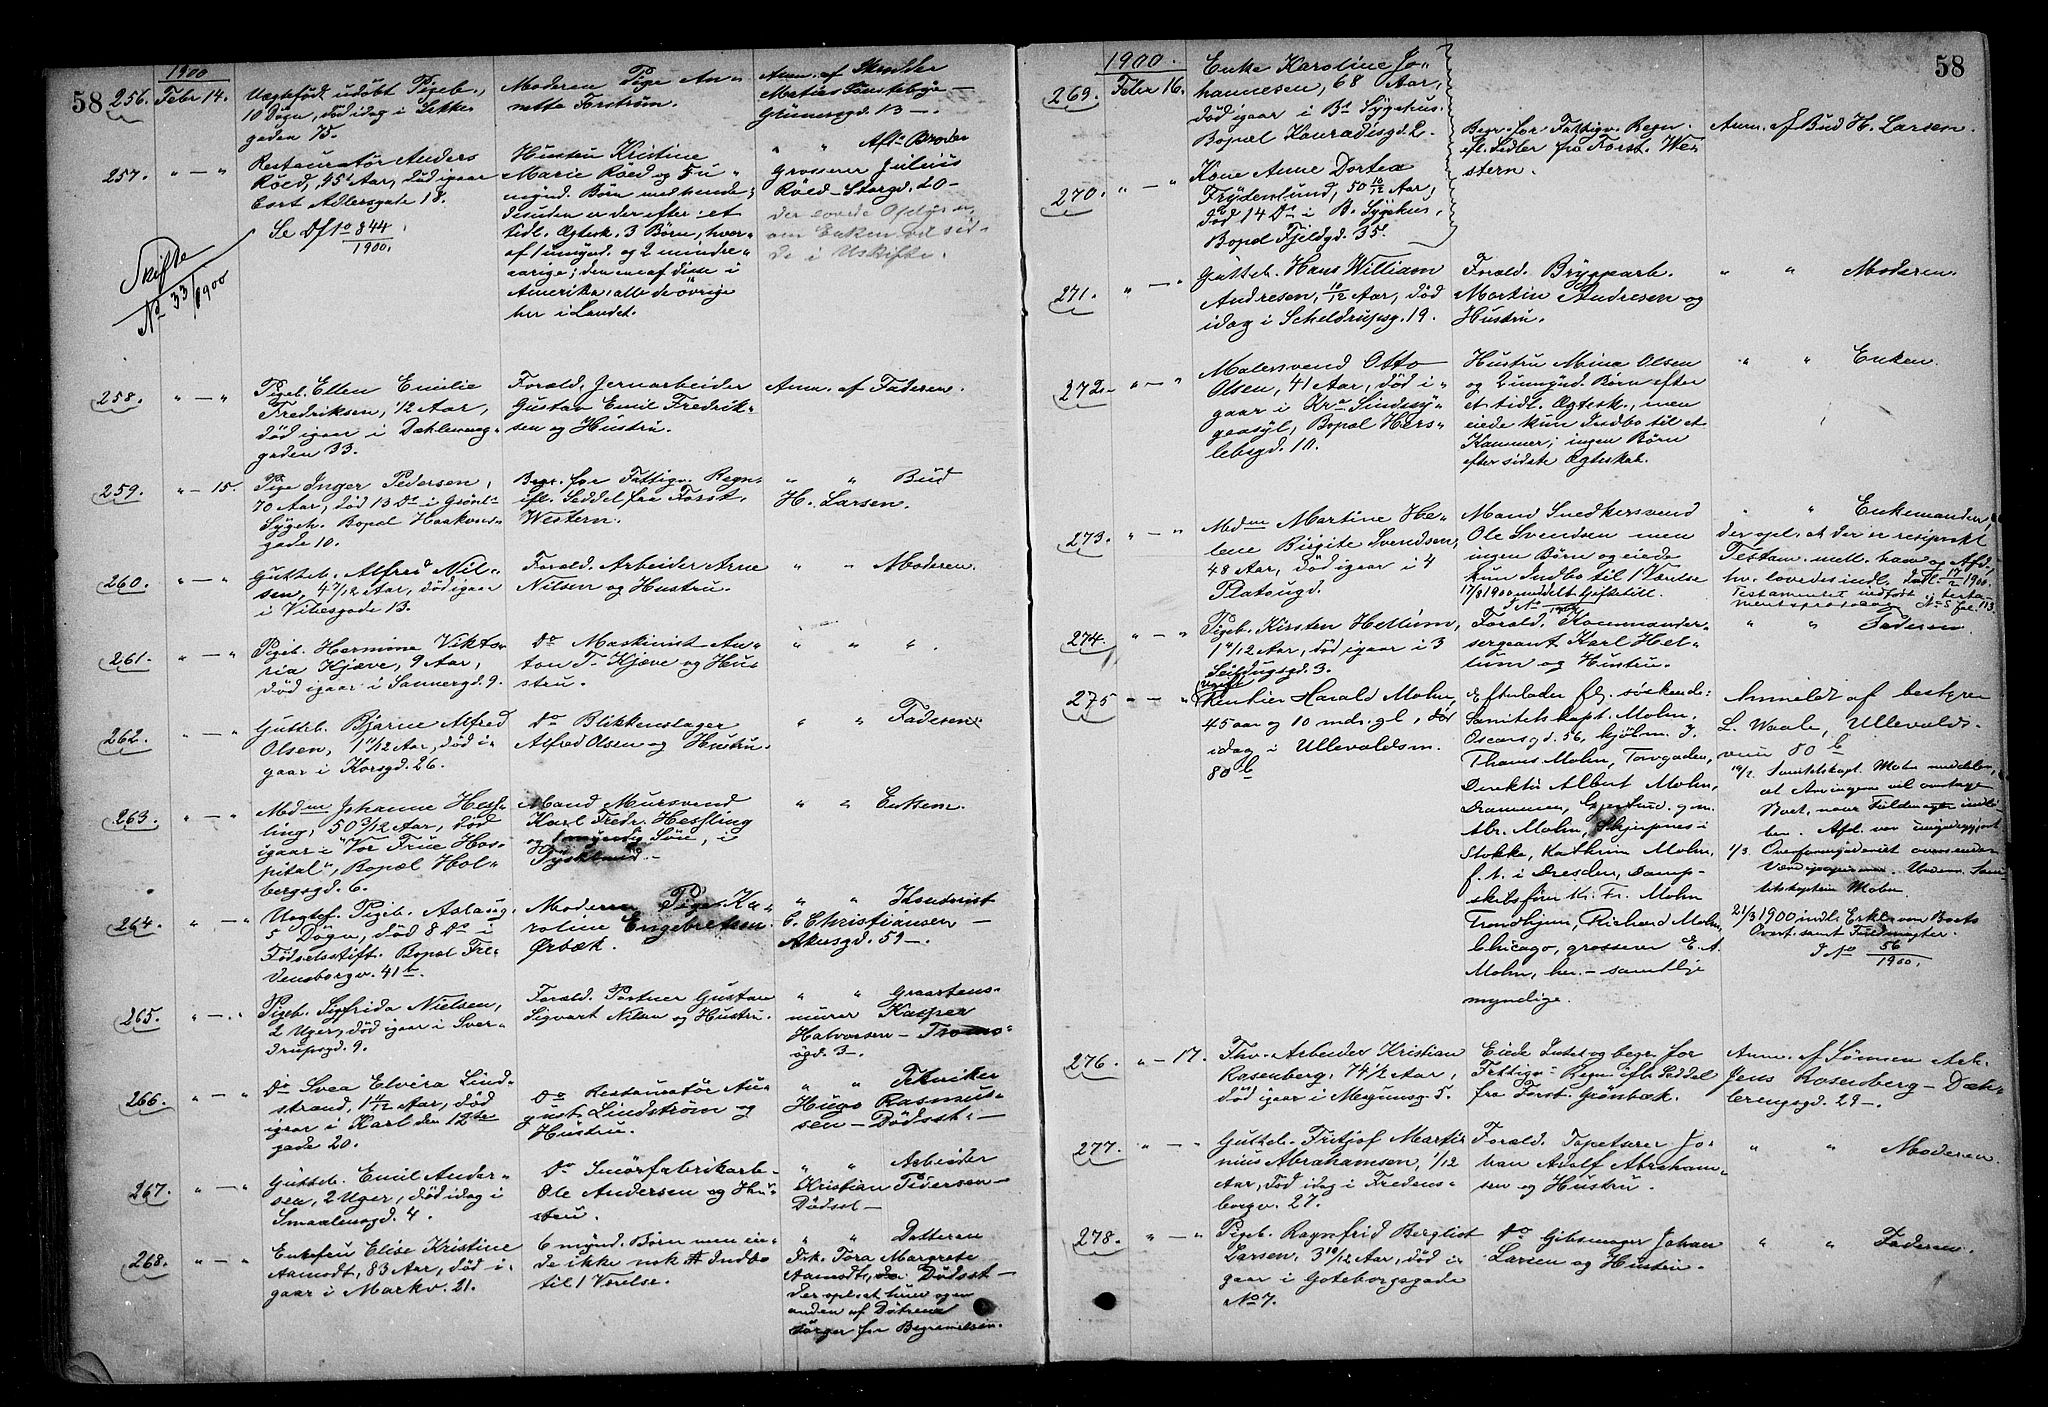 58
1900
256. Febr 14. Uægtefødt udøbt Pigeb.,
10 Døgn, død idag i Lakke-
gaden 75.
Moderen Pige An-
netta Forström.
Anm. af Skredder
Grünersgd. 13 —.
257. " — " Restauratør Anders
Röed, 45 Aar, død igaar
Cort Adlersgade 18.
Se Df No 844
1900.
Skifte
No 33/1900
Hustru Kristine
Marie Röed og 5 u-
mynd. Børn nedkende-
disuden er der efter et
tidl. Ægtesk. 3 Børn, hver-
af 1 umynd. og 2 mindre-
aarige; den ene af disse i
Amerika, alle de øvrige
her i Landet.
" " Afd. Broder
Grosserer Julius
Röed — Storgd. 20 —
der lovede Opdyse
om Enken vil sid-
de i Uskifte.
258. " — " Pigeb. Ellen Emilie
Fredriksen, 1/2 Aar,
død igaar i Dæhleneng-
gaden 33.
Foræld. Jernarbeider
Gustav Emil Fredrik-
sen og Hustru.
Anm. af Faderen.
259. " — 15. Pige Inger Pedersen,
70 Aar, død 13 Ds i Grønl.
Sygeh. Bopæl Haakons-
gade 10.
Begr. for Fattigv. Regn.
efl. Seddel fra Forst.
Western.
" " Bud
H. Larsen.
260. " — " Gutteb. Alfred Nil-
sen, 4 7/12 Aar, død igaar
i Vibesgade 13.
Foræld. Arbeider Arne
Nilsen og Hustru.
" " Moderen.
261. " — " Pigeb. Hermine Vikto-
ria Kjæve, 9 Aar,
død igaar i Sannergd. 9.
Do Maskinist An-
ton F. Kjæve og Hus-
stru.
" " ".
262. " — " Gutteb. Bjarne Alfred
Olsen, 1 11/12 Aar, død i-
gaar i Korsgd. 26.
Do Blikkenslager
Alfred Olsen og Hustru.
" " Faderen.
263. " — " Madm Johanne Hess-
ling, 50 3/12 Aar, død
igaar i "Vor Frue Hos-
pital", Bopæl Hol-
bergsgd. 6.
Mand Mursvend
Karl Fredr. Hessling
og 1 myndig Søn, i
Tyskland —
" " Enkem.
264. " — " Uægtef. Pigeb. Aslaug,
5 Døgn, død 8 Ds i
Fødselsstift. Bopæl Fre-
densborgv. 41 b.
Moderen Pige Ka-
roline Engebretsen
Ørbæk.
" "
C. Christiansen —
Akersgd. 59 —.
265. " — " Pigeb. Sigfrida Nielsen,
2 Uger, død igaar i Sver-
drupsgd. 9.
Foræld. Portner Gustav
Sigvart Nilsen og Hustru.
" " Graastens-
murer Kasper
Halvorsen — Troms-
ögd. 3 —.
266. " — " Do Svea Elvira Lind-
strand, 1 4/12 Aar, død
igaar i Karl den 12tes
gade 20.
Do Restauratør Au-
gust Lindström og
Hustru.
" " Tekniker
Hugo Rasmus-
sen — Dødsst: —
267. " — " Gutteb. Emil Ander-
sen, 2 Uger, død idag i
Smaalensgd. 4.
Do Smørfabrikarb.
Ole Andersen og Hu-
stru.
" " Arbeider
Kristian Pedersen —
Dødsst —
268. " — " Enkefru Elise Kristine
Aamodt, 83 Aar, død i-
gaar i Markv. 21.
6 mynd. Børn men ei-
de ikke nok Indbo
til 1 Værelse.
" " Datteren
Frk. Tora Margrete
Aamodt, Dødsst —
der opl. at hun og en
anden af Døtrene
sørger for Begravelsen.
58
1900.
269. Febr 16. Enke Karoline Jo-
hannesen, 68 Aar,
død igaar i Bs Sygehus.
Bopæl Konradisgd. 2.
Begr. for Fattigv. Regn.
efl. Sedler fra Forst. We-
stern.
Anm. af Bud H. Larsen.
270. " — " Kone Anne Dortea
Frydenlund, 50 10/12 Aar,
død 14 Ds i B. Sygehus,
Bopæl Fjeldgd. 35.
271. " — " Gutteb. Hans William
Andresen, 10/12 Aar, død
idag i Scheldrupsg. 19.
Foræld. Bryggarb.
Martin Andresen og
Hustru.
" " Moderen.
272. " — " Malersvend Otto
Olsen, 41 Aar, død i-
gaar i Kra Sindssy-
geasyl, Bopæl Hers-
lebsgd. 10.
Hustru Mina Olsen
og 2 umynd. Børn efter
et tidl. Ægtesk., men
eiede kun Indbo til et
Kammer; ingen Børn
efter sidste Ægteskab.
" " Enken.
273. " — " Madm Martine He-
lene Birgite Svendsen,
48 Aar, død igaar i 4
Platougd.
Mand Snedkersvend
Ole Svendsen men
ingen Børn og eiede
kun Indbo til 1 Værelse
17/8 1900 meddelt Giftetill.
" " Enkemanden,
der opl. at der er resiprokt
Testam. mell. ham og Afd.
hv. lovedes indl. Indl. 17/2 1900.
Testamentet indført i testa-
mentsprotocol No 5 fol. 113
274. " — " Pigeb. Kirsten Heltum,
1 11/12 Aar, død igaar i 3
Seildugsgd. 3.
Foræld. Kommander-
sergeant Karl Hel-
tum og Hustru.
" " Faderen.
275 " — " ugift
Rentier Harald Mohn,
45 aar og 10 mdr. gl., død
idag i Ullevoldsv.
80 b
Efterlader flg. søskende:
Sanitetskapt. Mohn,
Oscarsgd. 56, kjøbm. J.
Thaws Mohn, Torvgaden,
Direktør Albert Mohn,
Drammen,
Abr. Mohn, Skjerpnes i
Stokke, Kathrine Mohn,
f. t. i Dresden, Damp-
skibsfører Kr. Fr. Mohn
Trondhjem, Richard Mohn,
Chicago, grosserer E. A.
Mohn, her. — samtlige
myndige.
Anmeldt af bestyrer
L. Waale, Ullevolds-
veien 80 b
19/2. Sanitetskapt. Mohn meddeler,
at Arvingerne vil overtage
Boet, naar Fuldmagter indlø-
ber. Afd. var
1/3. Overformynderiet oversender
Underr. Sani-
tetskaptein Mohn.
21/3 1900 indl. Erklær. om Boets
Overt. samt Fuldmagter.
J No 56
1900.
276. " — 17. Fhv. Arbeider Kristian
Rosenberg, 74 1/2 Aar,
død igaar i Mogensg. 5.
Eiede Intet og begr. for
Fattigv. Regn. efl. Seddel
fra Forst. Grönbæk.
Anm. af Sønnen Arb.
Jens Rosenberg — Dæh-
lerengsgd. 29 —.
277. " — " Gutteb. Fritjof Marti-
nius Abrahamsen, 1/12
Aar, død idag i Fredens-
borgv. 27.
Foræld. Tapetserer Jo-
han Adolf Abraham-
sen og Hustru.
" " Moderen.
278. " — " Pigeb. Ragnfrid Bergliot
Larsen, 3 10/12 Aar, død i-
gaar i Gøteborgsgade
No 7.
Do Gibsmager Johan
Larsen og Hustru.
" " Faderen.